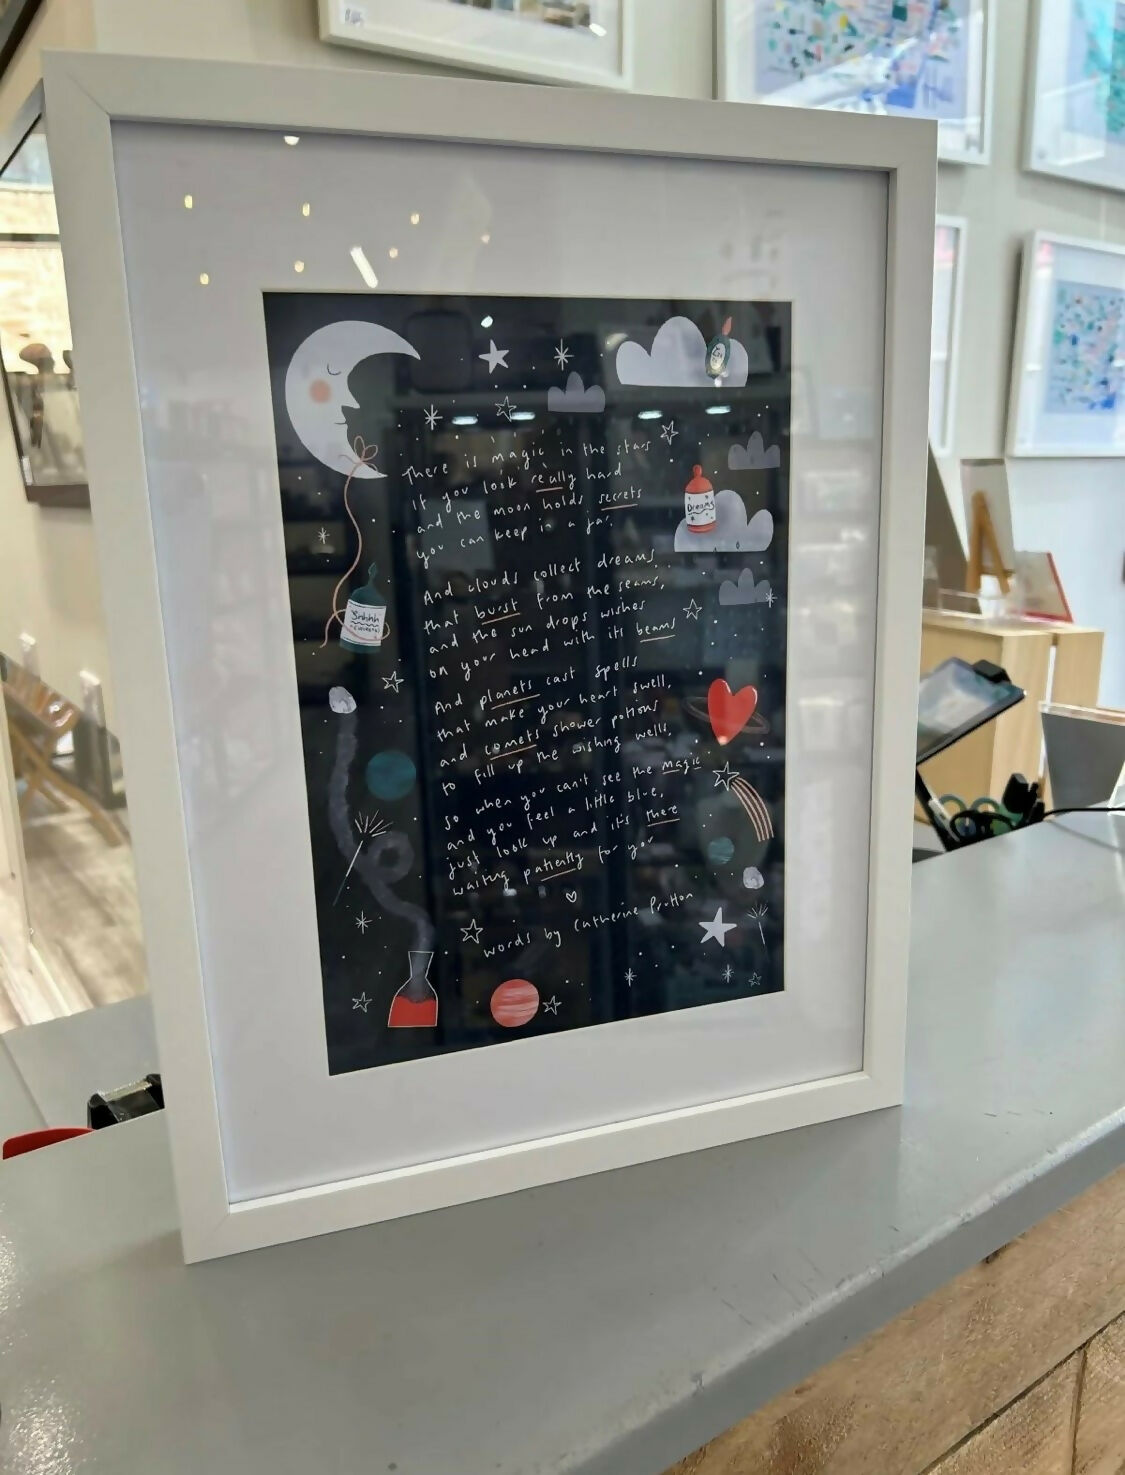 There is magic in the stars
if you look really hard
and the moon holds secrets
you can keep in a jar.
And clouds collect dreams,
that burst from the seams,
and the sun drops wishes
on your head with its beams
And planets cast spells
that make your heart swell,
and comets shower potions
to fill up the wishing wells,
so when you can't see the magic
and you feel a little blue,
just look up and it's there
waiting patiently for you
words by Catherine Prutton
Dreams
Shhhh